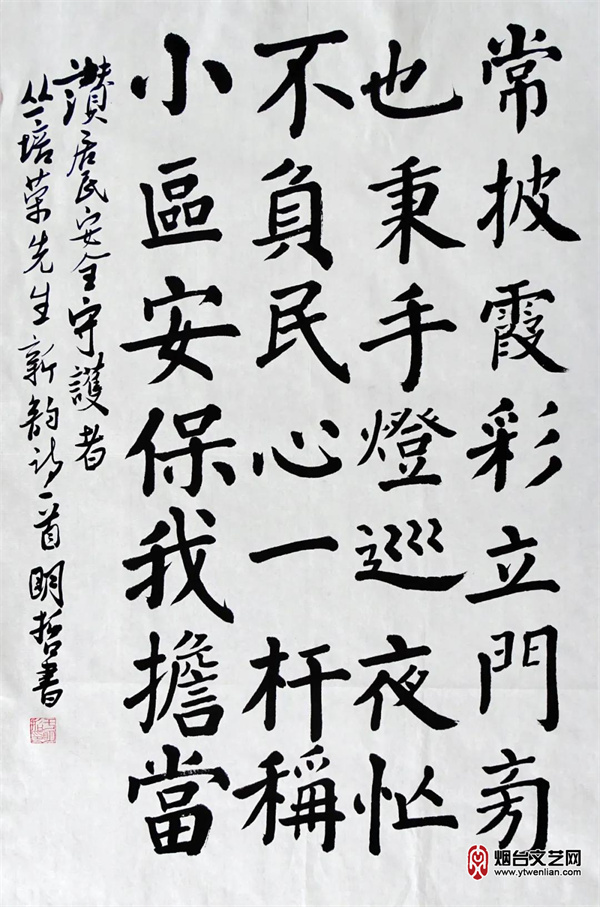 常披霞彩立門旁
也秉手燈巡夜忙
不負民心一杆稱
小區安保我擔當
讃居民安全守護者
丛培荣先生新韵诗一首 明哲書
烟台文艺网
www.ytwenlian.com